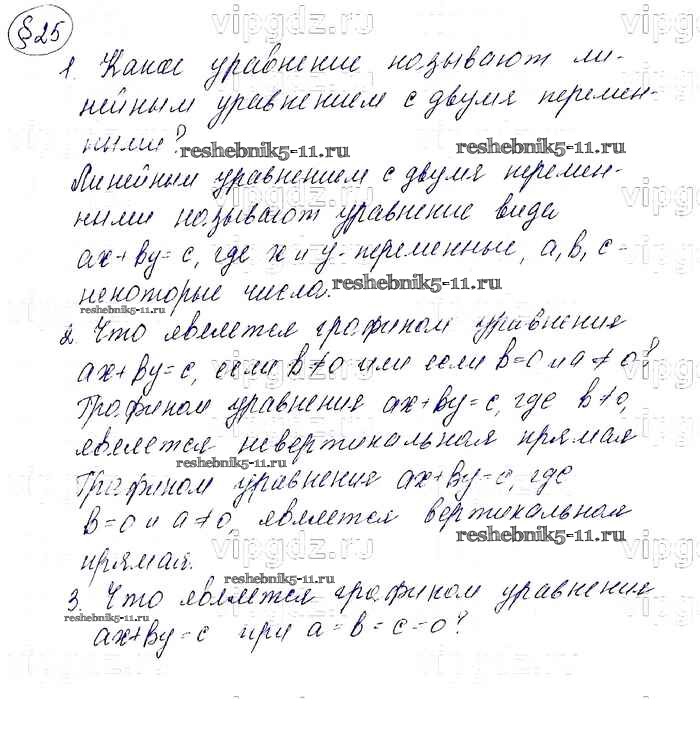 §25
1. Какое уравнение называют ли-
нейным уравнением с двумя перемен-
ными?
reshebnik5-11.ru reshebnik5-11.ru
Линейным уравнением с двумя перемен-
ными называют уравнение вида
ax+by=c, где x и y - переменные, a, b, c -
некоторые числа.
reshebnik5-11.ru
reshebnik5-11.ru
2. Что является графиком уравнения
ax+by=c, если b≠0 или если b=0 и a≠0?
Графиком уравнения ax+by=c, где b≠0,
является невертикальная прямая
reshebnik5-11.ru
Графиком уравнения ax+by=c, где
b=0 и a≠0, является вертикальная
reshebnik5-11.ru
прямая.
vipgdz.ru
reshebnik5-11.ru
3. Что является графиком уравнения
reshebnik5-11.ru
ax+by=c при a=b=c=0?